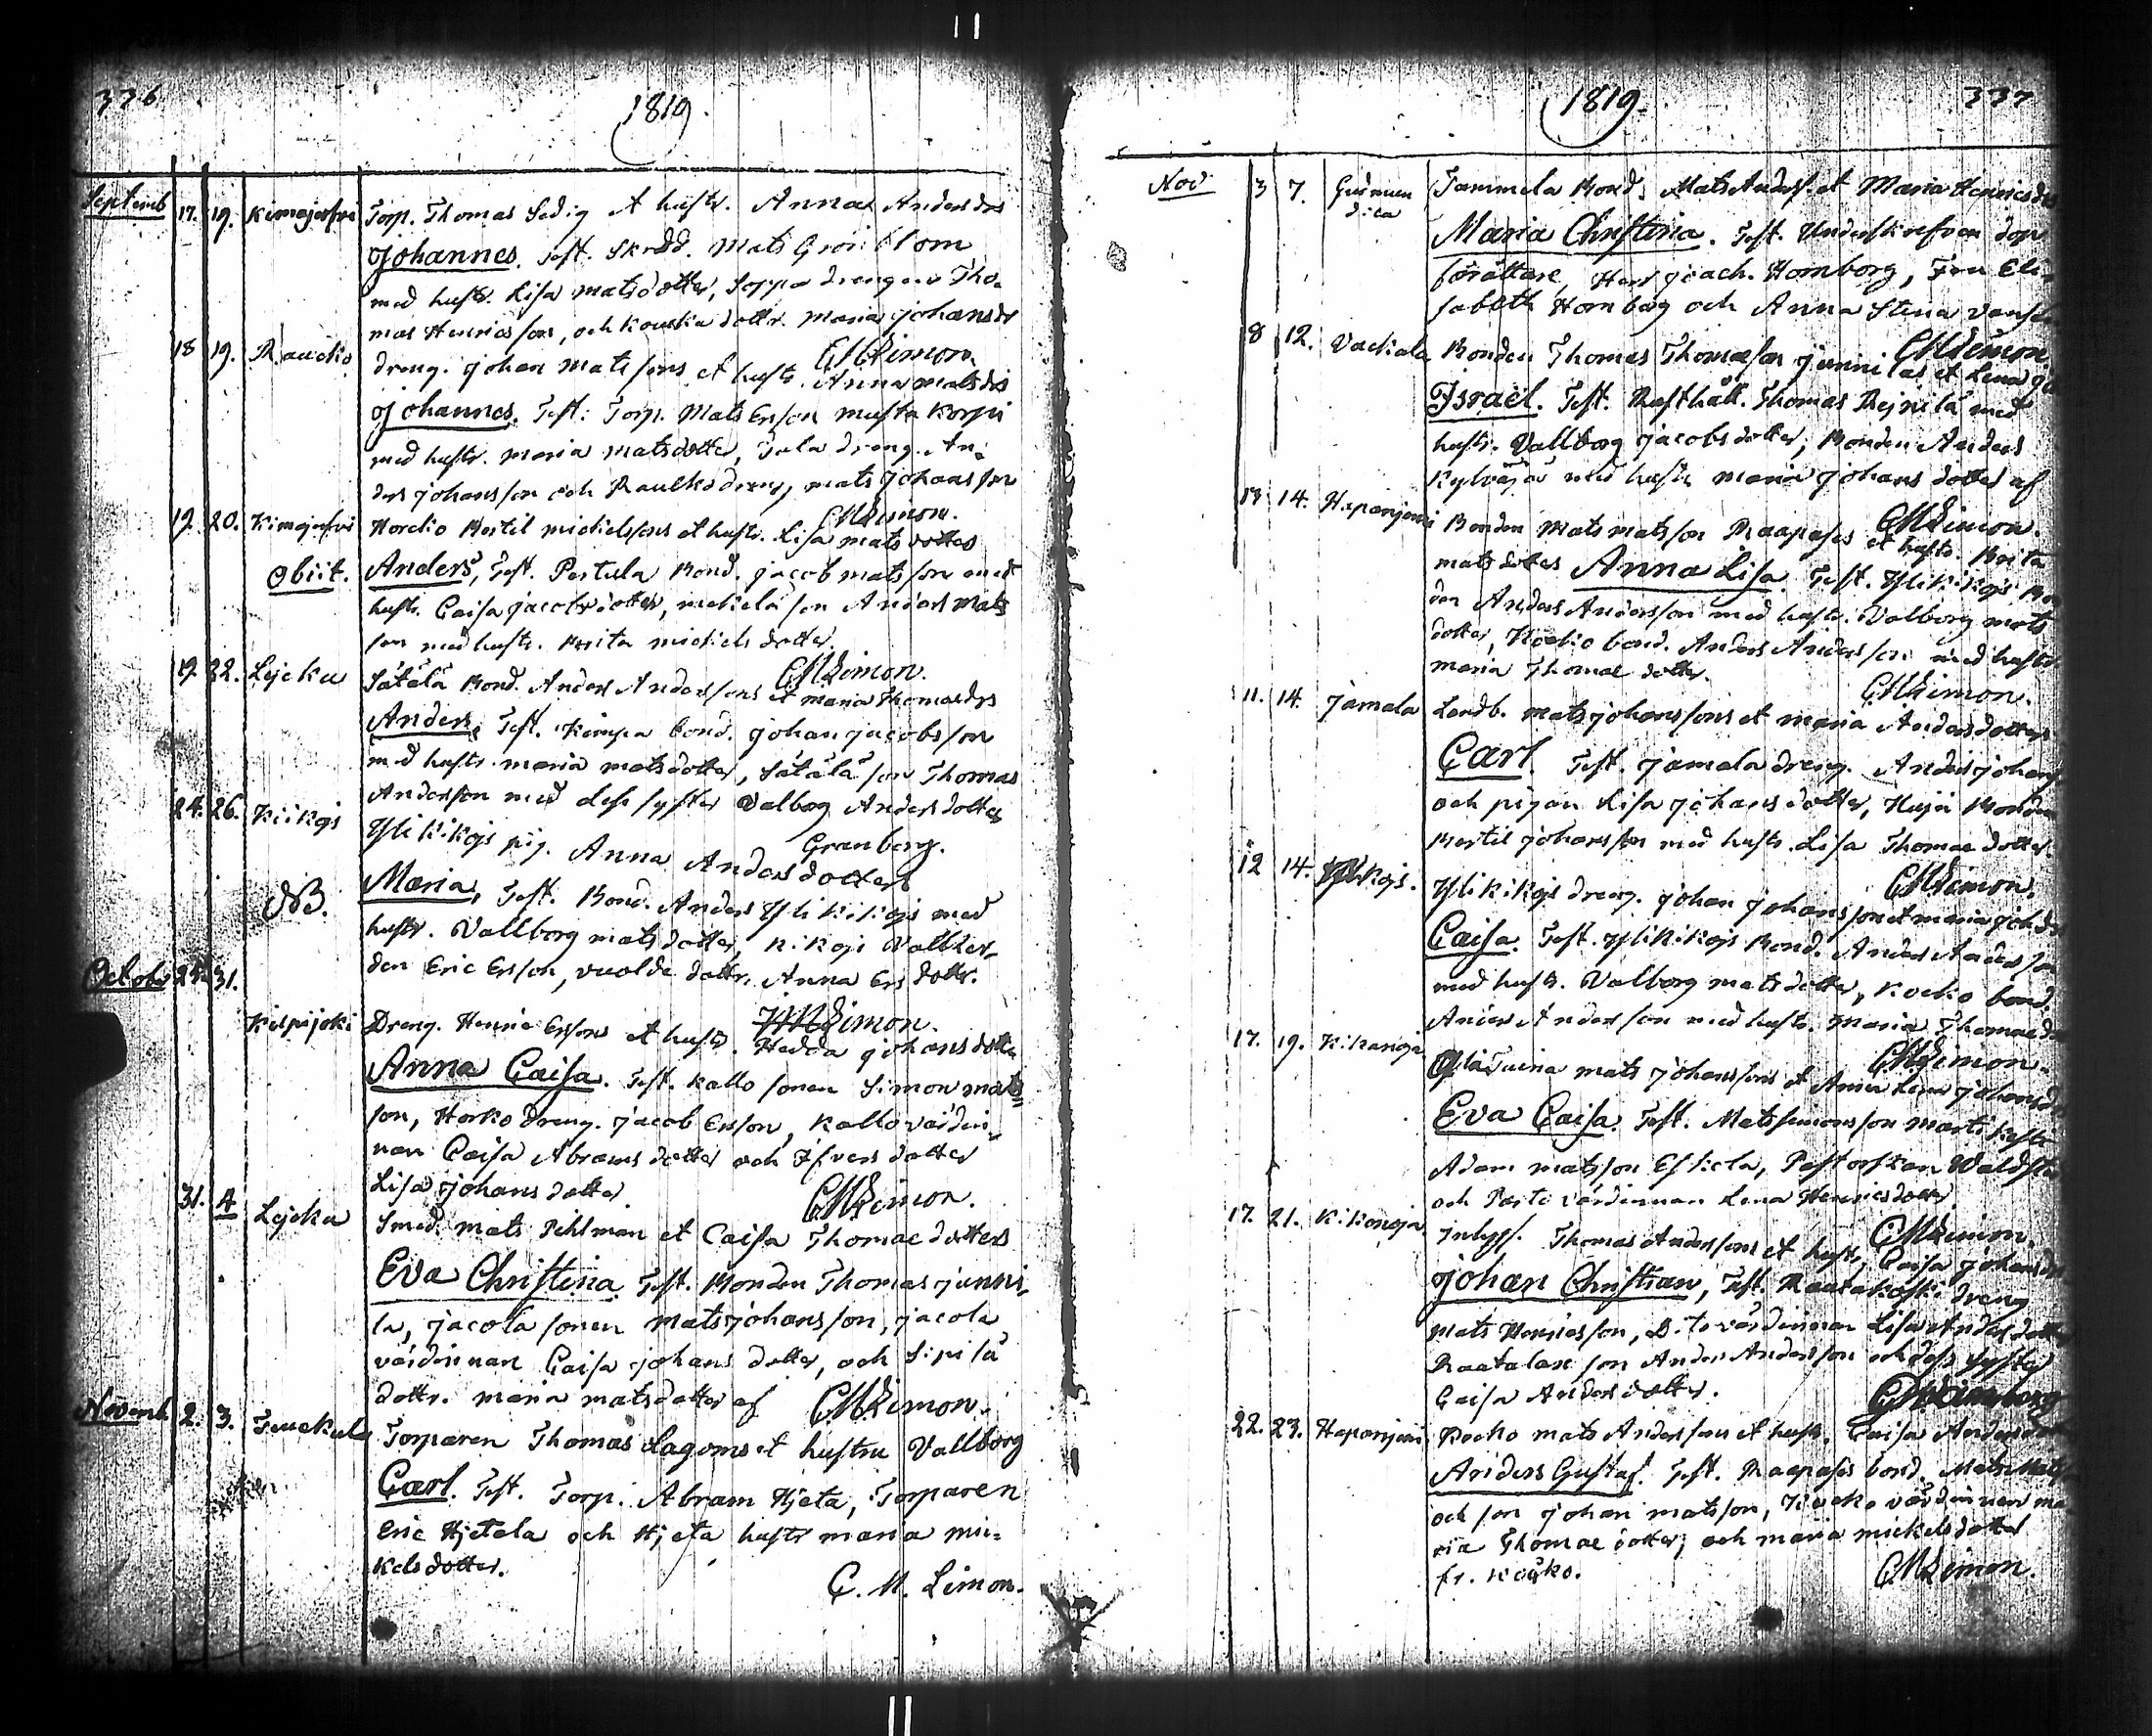 336
1819.
Septemb 17. 19. Kimajerfvi Torp. Thomas Sedig et hustr. Anna Andersdrs
Johannes. Test. Skrädd. Mats Grönblom
med hustr. Lisa matsdotter, Soppa drengen Tho-
mas Henricsson, och Kouska dottr. Maria Johansdr
CMLimon.
18 19. Raucko dreng. Johan Matssons et hustr. Anna matsdrs
Johannes. Test: Torp. Mats Ersson musta Korpi
med hustr. Maria matsdotter, Tula dreng. An-
ders Johansson och Raucko dreng, mats Johansson
CMLimon.
19. 20. Kimajerfvi Horcko Bertil mickelssons et hustr. Lisa mats dotters
Obiit. Anders, Test. Pertula Bond. Jacob matsson med
hustr. Caisa Jacobsdotter, mickelä son Anders Mats
son med hustr. Brita mickels dotter.
CMLimon.
19. 22. Lejcku Sätälä Bond. Anders Anderssons et maria Thomaedrs
Anders, Test. Kimpa bond. Johan Jacobsson
med hustr. maria matsdotter, Sätälä son Thomas
Andersson med dess syster Valborg Anders dotter
Granberg.
24. 26. Kiikois Yli Kikois pig. Anna Andersdotters
NB. Maria, Test. Bond. Anders Yli Kikois med
hustr. Vallborg matsdotter, Kikois
den Eric Ersson, vuolde dottr. Anna Ersdottr.
CMLimon.
Octobr 25. 31.
Kilpijoki Dreng. Henric Erssons et hustr. Hedda Johansdotters
Anna Caisa. Test. Kallo sonen Simon mats-
son, Horko dreng. Jacob Ersson, Kallo värdin-
nan Caisa Abramsdotter och dotter
Lisa Johans dotter
CMLimon.
31. 4 Lejcku Smed. mats Pihlman et Caisa Thomae dotters
Eva Christina. Test. Bonden Thomas Junni-
la, Jacola sonen mats Johansson, Jacola
värdinnan Caisa Johans dotter, och Sipilä
dottr. maria matsdotter af CMLimon.
Novemb 2. 3. Torparen Thomas Lagoms et hustru Vallborg
Carl. Test. Torp. Abram Hjeta, Torparen
Eric Hjetala och Hjeta hustr maria mic-
kelsdotter.
C. M. Limon.
1819.
337
Nov 3 7. Tammela Bond. Mats Anderss. et Maria Henricsdr
Maria Christina. Test. Underskrefven dop
förättare, Herr Joach. Hornborg, Fru Eli-
sabeth Hornborg och Anna Stina
CMLimon
8 12. Vackala Bonden Thomas Thomasson Junnilas et Lena
Israël. Test. Rusthåll. Thomas Rejnilä med
hustr. Vallborg Jacobsdotter, Bonden Anders
Kylväjä med hustr maria Johans dotter af
CMLimon.
13 14. Haponjemi Bonden Mats matsson Raapases et hustr. Brita
mats dotters Anna Lisa. Test. Yli Kikois Bon
den Anders Andersson med hustr. Valborg mats
dotter, Kocko bond. Anders Andersson med hustr
maria Thomae dotter.
CMLimon.
11. 14. Jamala Landb. mats Johanssons et maria Andersdotters
Carl. Test. Jamala dreng. Anders Johans
och pigan Lisa Johans dotter, Huja Bonden
Bertil Johansson med hustr. Lisa Thomae dotter.
CMLimon.
12 14. Kikois. Yli Kikois dreng. Johan Johansson et maria Joh. drs
Caisa. Test. Yli Kikois Bond. Anders Andersson
med hustr. Valborg mats dotter, Kocko bond.
Anders Andersson med hustr. Maria Thomaedr
CMLimon.
17. 19. Kikanoja mats Johanssons et Anna Lena Johansdr
Eva Caisa. Test. Mats Simonsson
Adam matsson Eskola, Pastorskan
och Perti värdinnan Lena Henricsdotter
CMLimon.
17. 21. Kikonoja Inhys. Thomas Anderssons et hustr. Caisa Johansdrs
Johan Christian, Test. Raatakoski dreng
Mats Henricsson, Dito värdinnan Lisa Andersdotter
Raatalan son Anders Andersson och dess syster
Caisa Anders dotter.
22. 23. Haponjemi Kocko mats Anderssons et hustr. Caisa Andersdotters
Anders Gustaf. Test. Raapases bond. Mats Mats
och son Johan matsson, Kocko värdinnan ma
ria Thomae dotter, och maria mickelsdotter
fr. Kocko.
CMLimon.